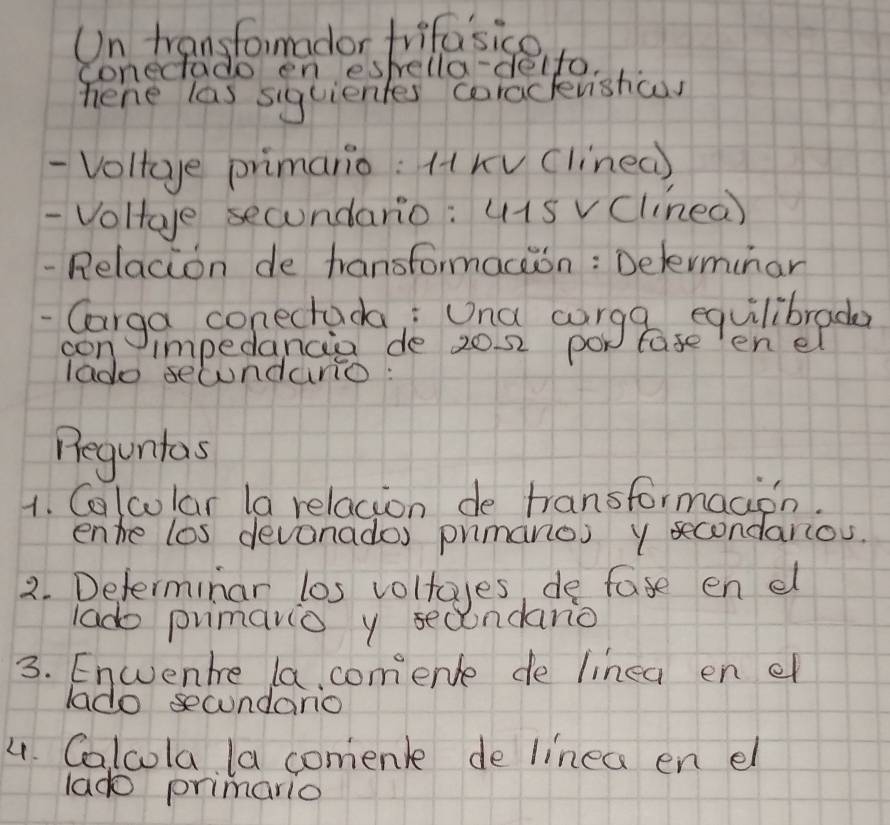 Un transformador trifásico,
conectado en estrella-delta.
tiene las siguientes caracteristicas
- Voltaje primario : 11 KV (linea)
- Voltaje secundario : 415 V (línea)
- Relación de transformación : Determinar
- Carga conectada : Una carga equilibrada
con impedancia de 20Ω por fase en el
lado secundario :
Preguntas
1. Calcular la relacion de transformación.
entre los devanados primarios y secondarios.
2. Determinar los voltajes de fase en el
lado primario y secondario
3. Encuentre la corriente de linea en el
lado secundario
4. Calcula la corriente de línea en el
lado primario